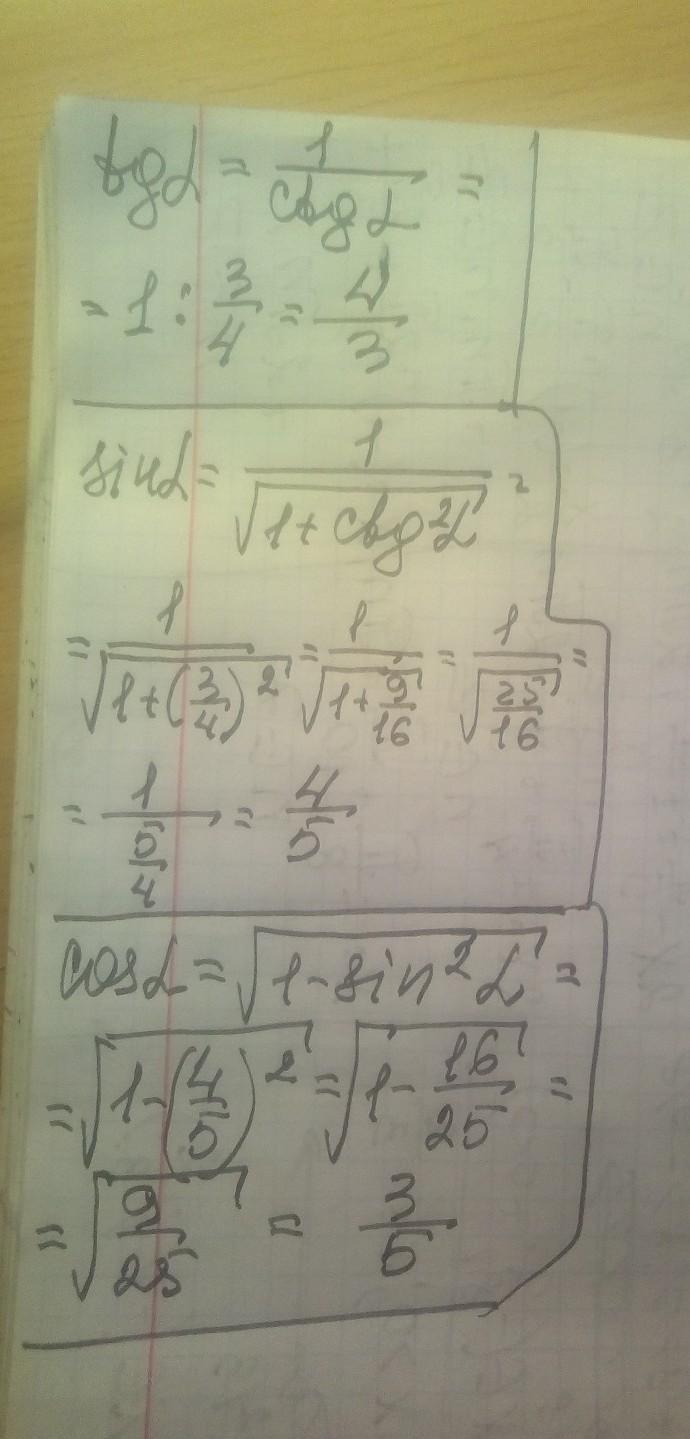 tgα = 1/ctgα =
= 1 : 3/4 = 4/3
sinα = 1/√(1+ctg²α) =
= 1/√(1+(3/4)²) = 1/√(1+9/16) = 1/√(25/16) =
= 1/(5/4) = 4/5
cosα = √(1-sin²α) =
= √(1-(4/5)²) = √(1-16/25) =
= √(9/25) = 3/5